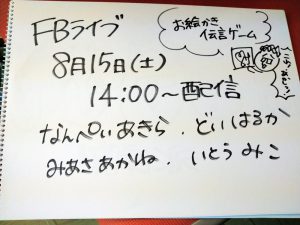 FBライブ
お絵かき
伝言ゲーム
8月15日(土)
14:00〜配信
なんぺいあきら. どいはるか
みあさあかね. いとうみこ